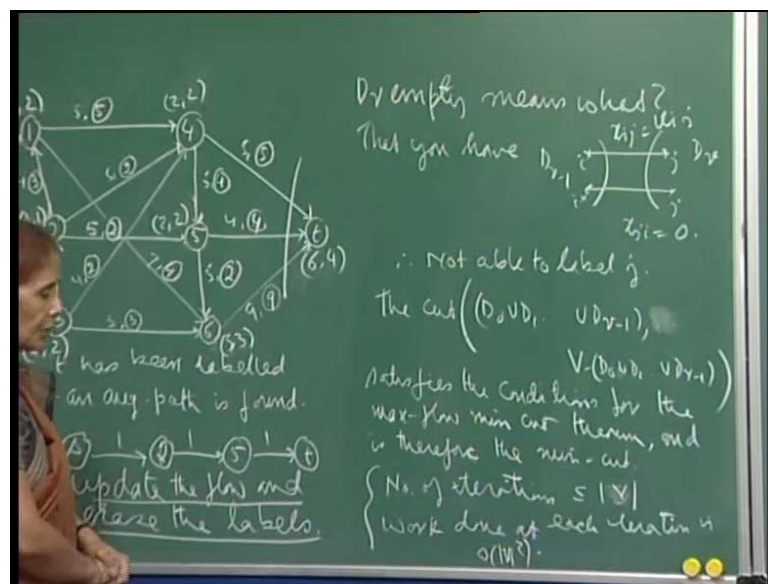 2)
(2,2)
1
5, ⑤
4
5, ⑤
②
5, ④
5, ②
(2,2)
5
4, ④
t
(6,4)
5, ②
9, ⑨
5, ③
6
(5,3)
, 2)
t has been labelled
an aug. path is found.
s 1 2 1 5 1 t
update the flow and
erase the labels.
Dr empty means what?
That you have
D r-1
i
xij = uij
j
Dr
i
j
xji = 0.
∴ Not able to label j.
The cut ( (D₀∪D₁ ∪D r-1),
V-(D₀∪D₁ ∪D r-1) )
satisfies the conditions for the
max-flow min cut theorem, and
is therefore the min-cut.
No. of iterations ≤ |V|
work done at each iteration is
O(|V|²).